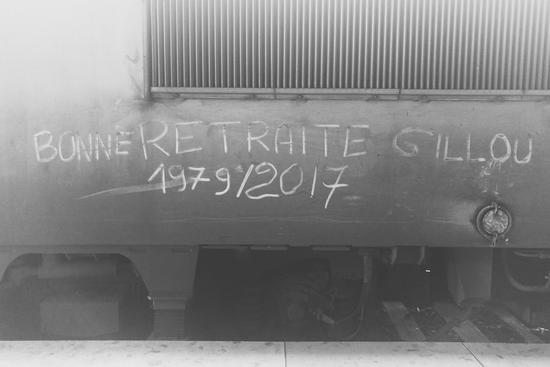 BONNE RETRAITE GILLOU
1979/2017